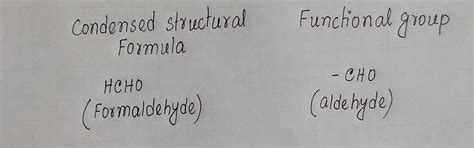 Condensed structural Formula
Functional group
HCHO
(Formaldehyde)
- CHO
(aldehyde)